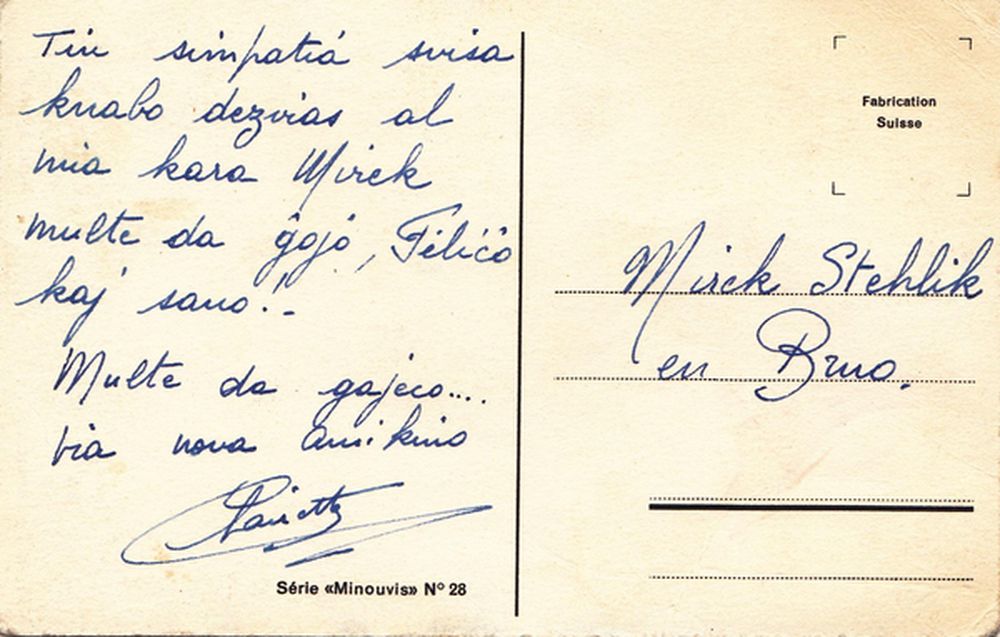 Tiu simpatiá svisa
knabo dezvias al
mia kara Mirek
multe da ĝojó, Féliĉo
kaj sano!-
Multe da gajeco....
via nova amikino
Série «Minouvis» Nº 28
Fabrication
Suisse
Mirek Stehlik
en Brno.